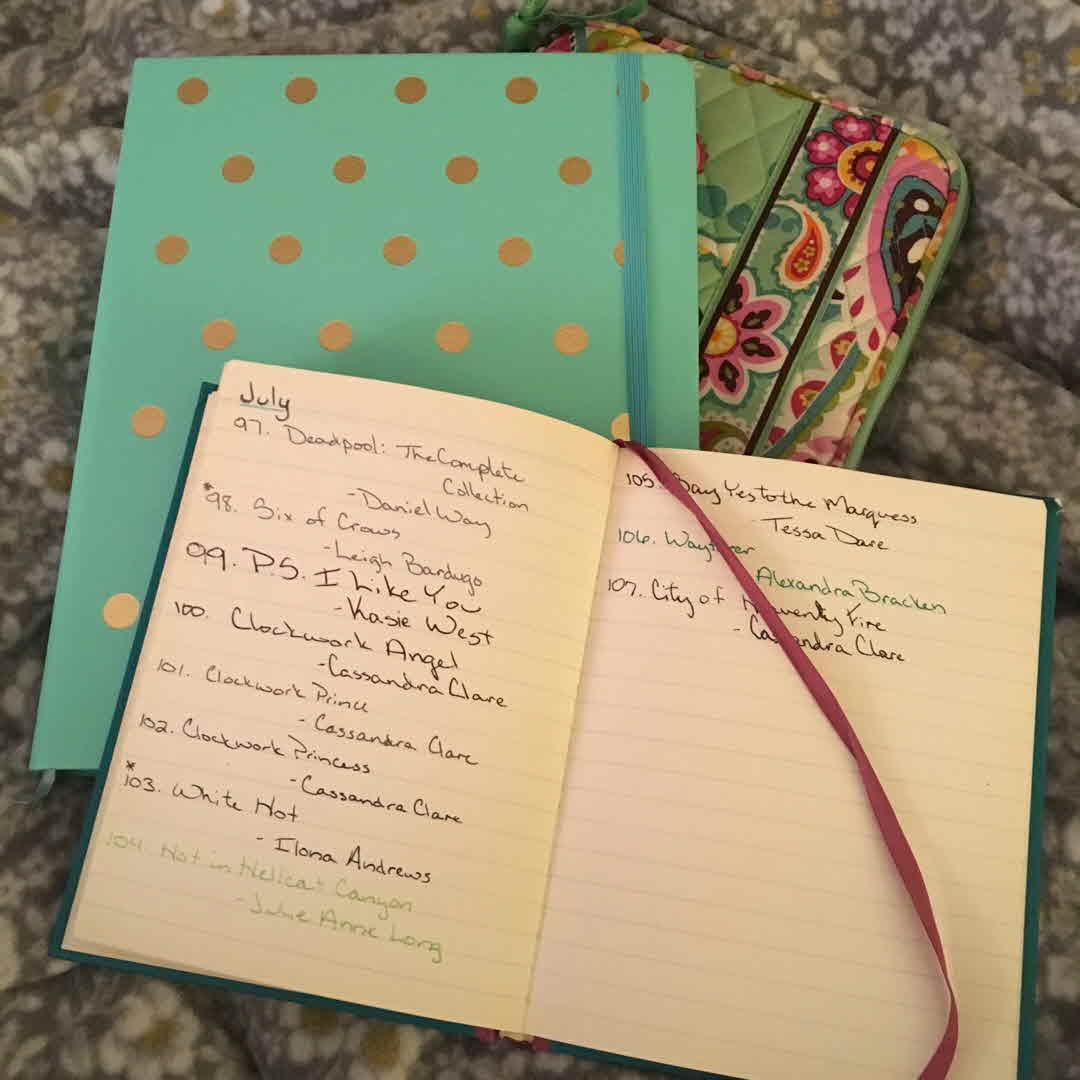 July
97. Deadpool: The Complete
Collection
- Daniel Way
*98. Six of Crows
- Leigh Bardugo
99. P.S. I Like You
- Kasie West
100. Clockwork Angel
- Cassandra Clare
101. Clockwork Prince
- Cassandra Clare
102. Clockwork Princess
- Cassandra Clare
*103. White Hot
- Ilona Andrews
104. Hot in Hellcat Canyon
- Julie Anne Long
105. Say Yes to the Marquess
Tessa Dare
106.
Alexandra Bracken
107. City of Heavenly Fire
- Cassandra Clare